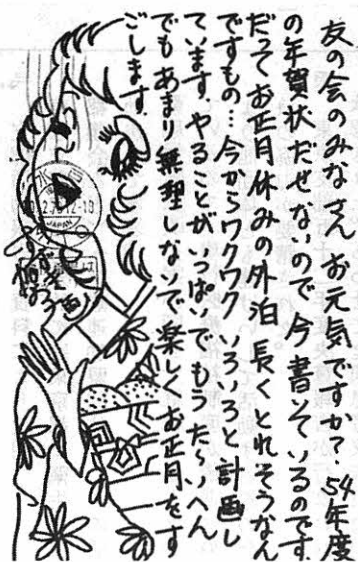 友の会のみなさん お元気ですか？ 54年度
の年賀状だせないので今書いているのです。
だってお正月休みの外泊 長くとれそうなん
ですもの…今からワクワク いろいろと計画し
ています。やることがいっぱいでもうた〜いへん
でもあまり無理しないで楽しくお正月をす
ごします。